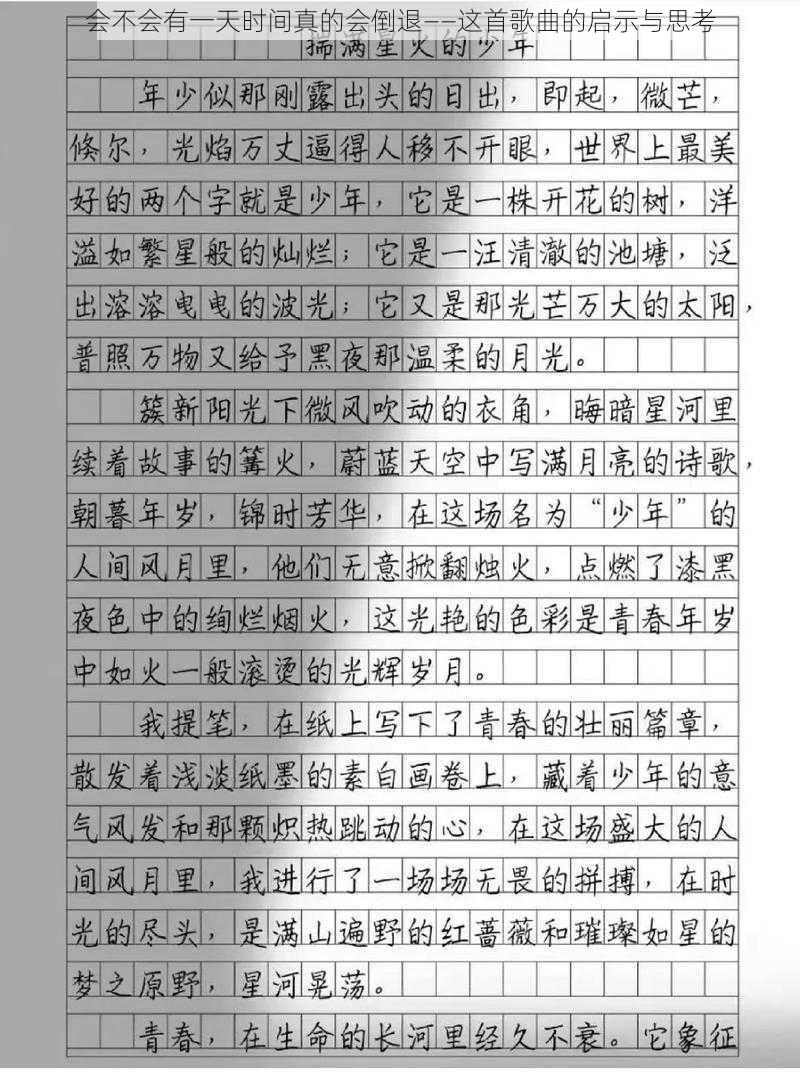 会不会有一天时间真的会倒退——这首歌曲的启示与思考
揣满星火的少年
年少似那刚露出头的日出，即起，微芒，
倏尔，光焰万丈逼得人移不开眼，世界上最美
好的两个字就是少年，它是一株开花的树，洋
溢如繁星般的灿烂；它是一汪清澈的池塘，泛
出溶溶曳曳的波光；它又是那光芒万大的太阳，
普照万物又给予黑夜那温柔的月光。
簇新阳光下微风吹动的衣角，晦暗星河里
续着故事的篝火，蔚蓝天空中写满月亮的诗歌，
朝暮年岁，锦时芳华，在这场名为“少年”的
人间风月里，他们无意掀翻烛火，点燃了漆黑
夜色中的绚烂烟火，这光艳的色彩是青春年岁
中如火一般滚烫的光辉岁月。
我提笔，在纸上写下了青春的壮丽篇章，
散发着浅淡纸墨的素白画卷上，藏着少年的意
气风发和那颗炽热跳动的心，在这场盛大的人
间风月里，我进行了一场场无畏的拼搏，在时
光的尽头，是满山遍野的红蔷薇和璀璨如星的
梦之原野，星河晃荡。
青春，在生命的长河里经久不衰。它象征